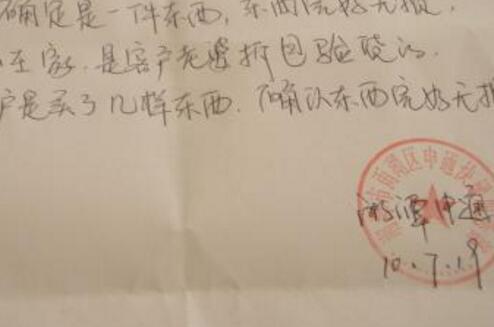 确定是一件东西，东西完好无损，
在家，是客户老婆拆包验货的，
户是买了几样东西，确认东西完好无损
湘潭申通
10.7.19